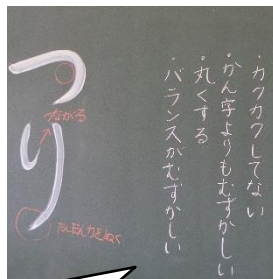 ・カクカクしてない
・かん字よりもむずかしい
・丸くする
・バランスがむずかしい
つり
つながる
だんだん力をぬく